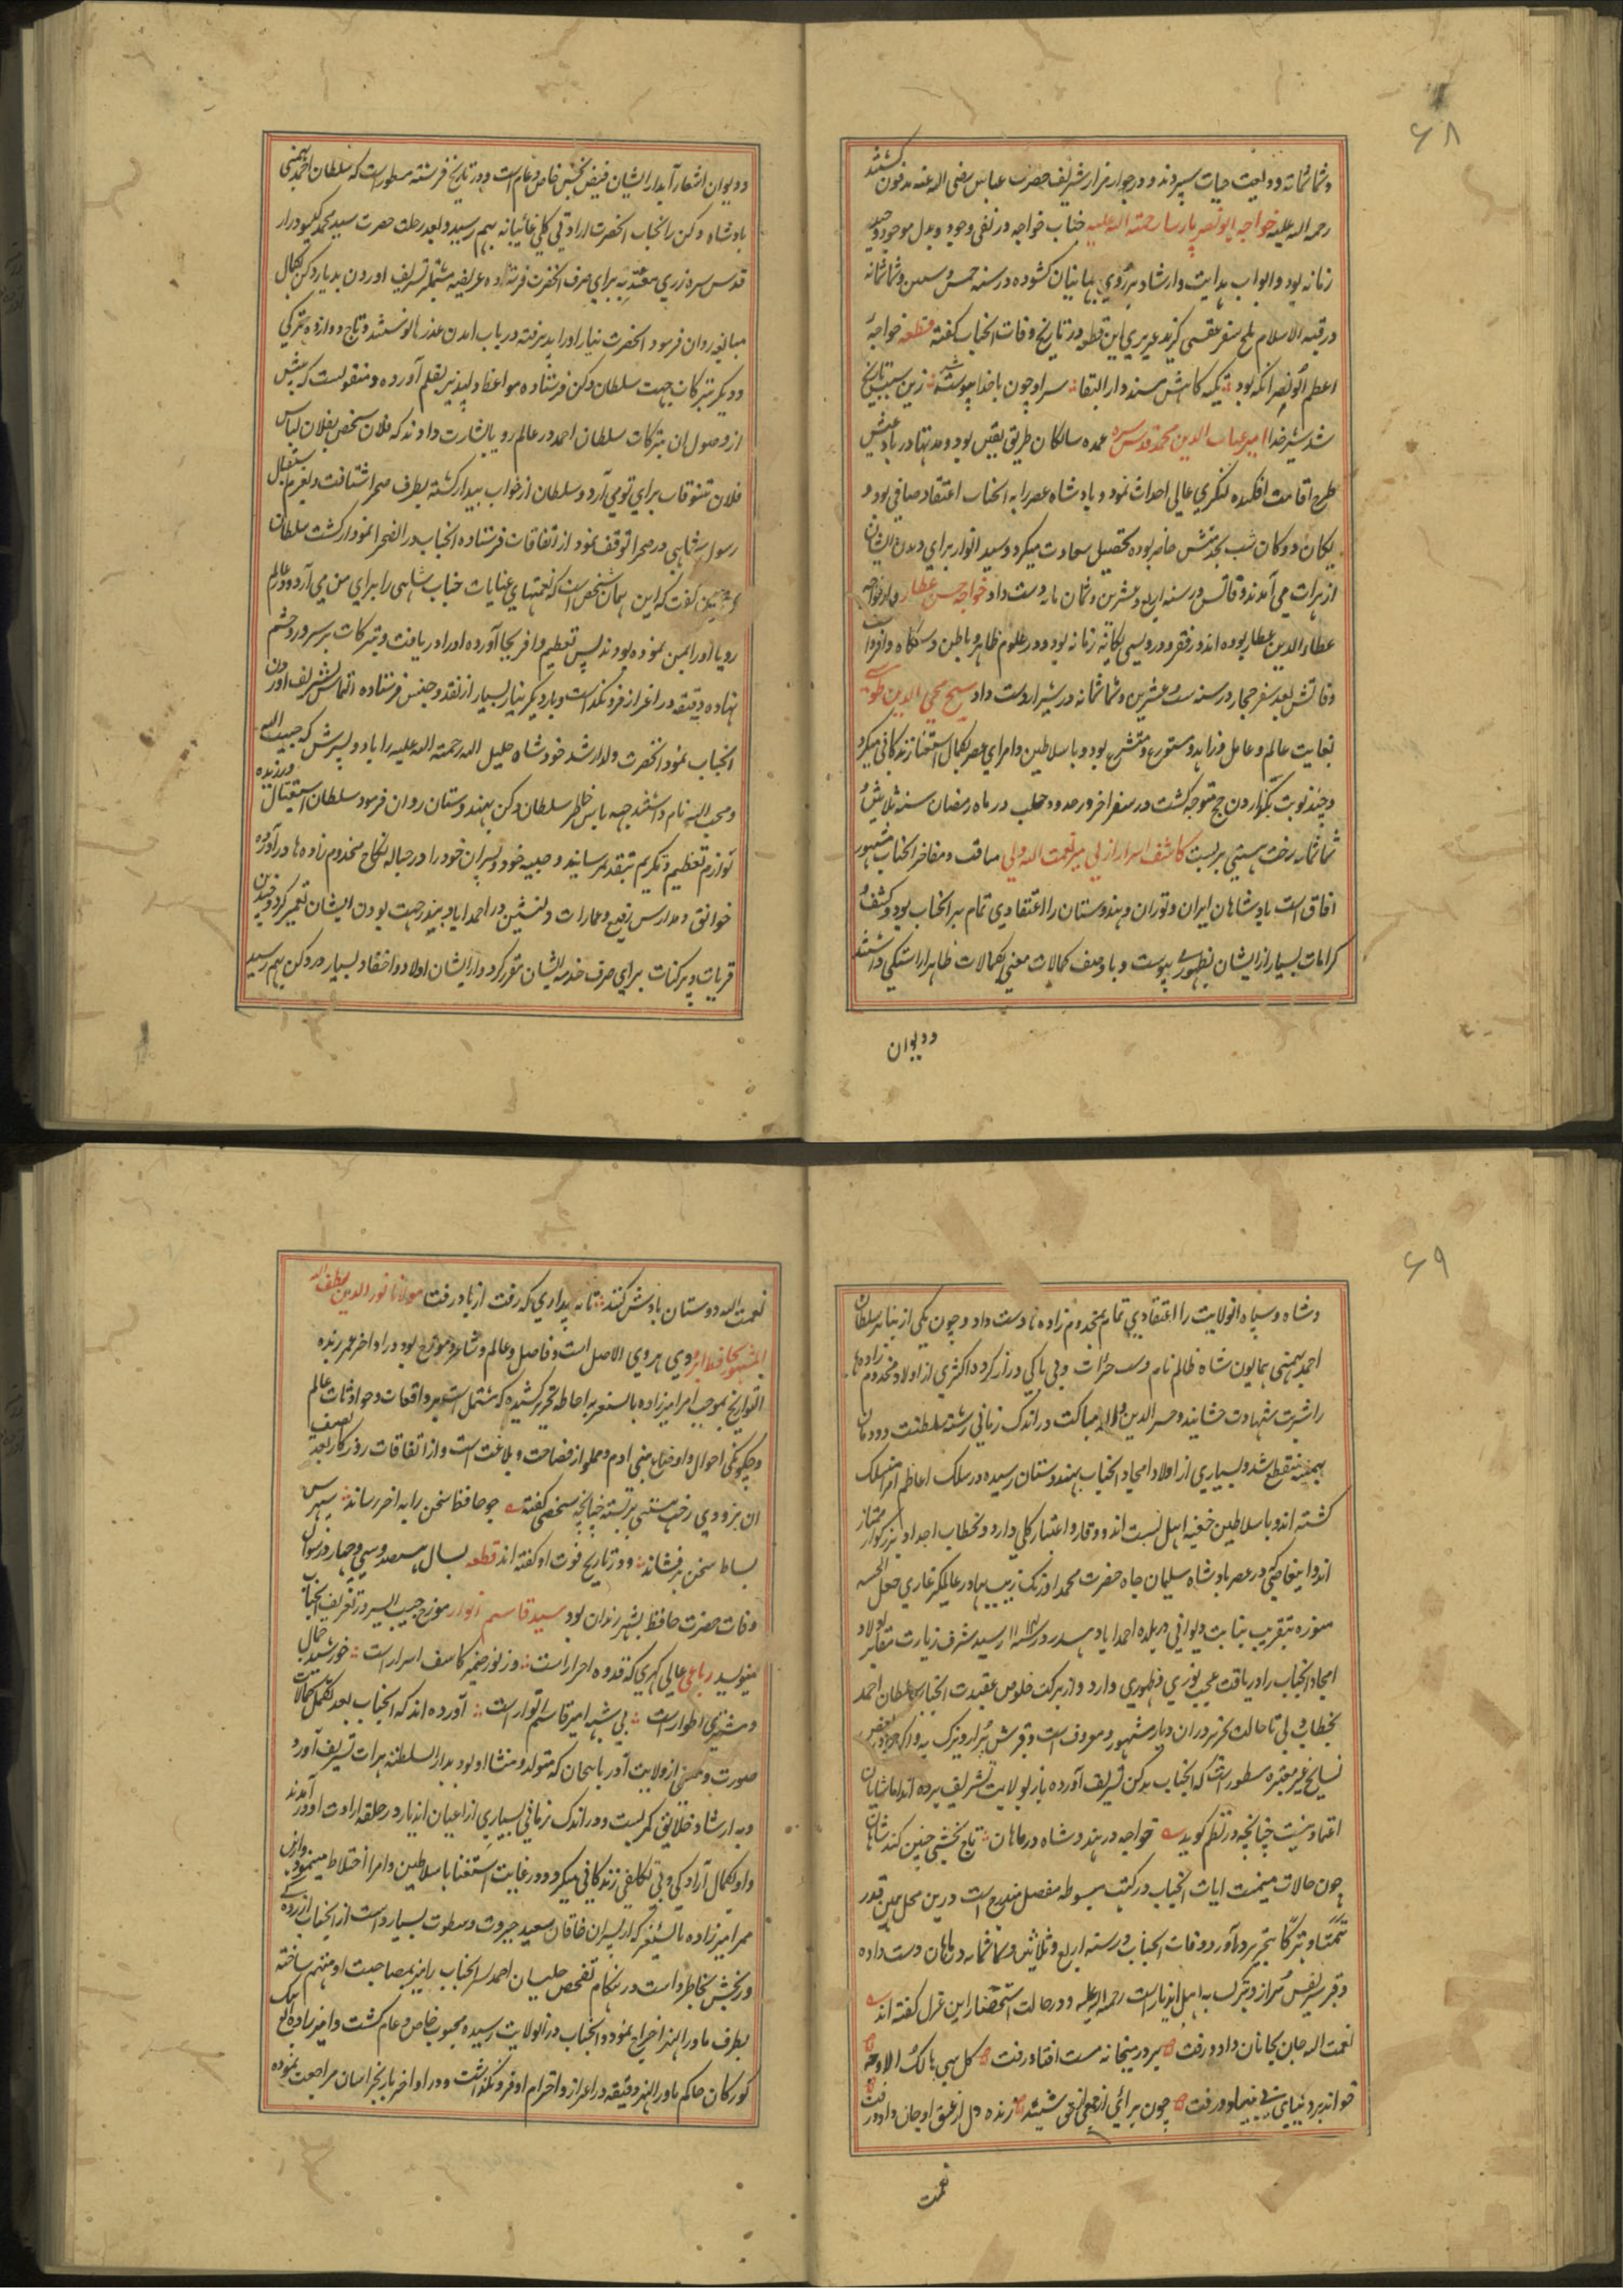 ۶۸
وثمانمائه وديعت حيات سپردند و در جوار مزار شريف حضرت عباس رضى الله عنه مدفون گشتند
رحمه الله عليه خواجه ابونصر پارسا رحمة الله عليه جناب خواجه در نفى وجود و بذل موجود وحيد
زمانه بود و ابواب هدايت و ارشاد بر روى جهانيان گشوده در سنه خمس و ستين وثمانمائه
در قبة الاسلام بلخ سفر عقبى گزيد عزيزى اين قطعه در تاريخ وفات انجناب گفته قطعه خواجهٔ
اعظم ابونصر انكه بود تكيه كاهش مسند دار البقا سر او چون با خدا پيوسته شد زين سبب تاريخ
شد سر خدا امير غياث الدين محمد قدس سره عمده سالكان طريق يقين بود و مدتها در باد عيش
طرح اقامت افكنده لنگرى عالى احداث نمود و پادشاه عصر را به انجناب اعتقاد صافى بود و
يكان و دوكان شب بخدمتش حاضر بوده تحصيل سعادت ميكرد و سيد انوار براى ديدن ايشان
از هرات مى آمدند وفاتش در سنه اربع و عشرين و ثمان مايه دست داد خواجه حسن عطار ولد خواجه
علاء الدين عطار بوده اند در فقر و درويشى يگانه زمانه بود و در علوم ظاهر و باطن دستگاه وافر داشت
وفاتش بعد سفر حجاز در سنه ست عشرين و ثمانمائه در شيراز دست داد شيخ محيى الدين طوسى
بغايت عالم و عامل و زاهد و متورع و متشرع بود و با سلاطين و امراى عصر بكمال استغنا زندگانى ميكرد
و چند نوبت بگذاردن حج متوجه گشت در سفر اخر در حدود حلب در ماه رمضان سنه ثلاثين و
ثمانمائه رخت هستى بر بست كاشف اسرار ازلى مير نعمت الله ولى مناقب و مفاخر انجناب مشهور
افاق است پادشاهان ايران و توران و هندوستان را اعتقادى تمام بر انجناب بود و كشف و
كرامات بسيار از ايشان بظهور پيوست و با وصف كمالات معنى بكمالات ظاهر اراستگى داشتند
و ديوان
و ديوان اشعار آبدار ايشان فيض بخش خاص و عام است و در تاريخ فرشته مسطور است كه سلطان احمد بهمنى
پادشاه دكن را بجناب انحضرت ارادتى كلى غائبانه بهم رسيد و بعد رحلت حضرت سيد محمد گيسو دراز
قدس سره زرى معتد به براى صرف انحضرت فرستاده عريضه مشتملبر تشريف اوردن بديار دكن بكمال
مبالغه روان فرمود انحضرت نياز او را پذيرفته در باب امدن عذرها نوشتند و تاج دوازده تركى
و ديگر تبركات جهت سلطان دكن فرستاده مواعظ دلپذير بقلم آورده و منقولست كه پيش
از وصول ان تبركات سلطان احمد در عالم رويا بشارت دادند كه فلان شخص بفلان لباس
فلان تنسوقات براى تو مى آرد و سلطان از خواب بيدار گشته بطرف صحرا شتافت و بعزم استقبال
رسول شاهى در صحرا توقف نمود از اتفاقات فرستاده انجناب در ان صحرا نمودار گشت سلطان
گفت كه اين همان شخص است كه نعمتهاى عنايات جناب شاهى را براى من مى آرد و در عالم
رويا او را بمن نموده بودند پس تعظيم وافر بجا آورده او را دريافت و تبركات بر سر و چشم
نهاده دقيقه در اعزاز فرو نگذاشت و بار ديگر نياز بسيار از نقد و جنس فرستاده التماس تشريف اوردن
انجناب نمود انحضرت ولد ارشد خود شاه خليل الله رحمة الله عليه را با دو پسرش كه حبيب الله
و محب الله نام داشتند جهه پاس خاطر سلطان دكن بهندوستان روان فرمود سلطان استقبال ورزيده
لوازم تعظيم و تكريم بتقديم رسانيد و صبيه خود و پسران خود را در حباله نكاح مخدوم زاده ها درآورده
خوانق و مدارس رفيع و عمارات دلنشين در احمداباد بيدر جهت بودن ايشان تعمير كرد و چندين
قريات و پرگنات براى صرف خدمه ايشان مقرر كرد و از ايشان اولاد و احفاد بسيار در دكن بهم رسيد
۶۹
و شاه و سپاه انولايت را اعتقادى تمام بمخدوم زاده ها دست داد و چون يكى از نباير سلطان
احمد بهمنى همايون شاه ظالم نام دست جرات و بى باكى دراز كرد و اكثرى از اولاد مخدوم زاده ها
را شربت شهادت چشانيد و خسر الدين در اندك زمانى رشته سلطنت دودمان
بهمنيه منقطع شد و بسيارى از اولاد امجاد انجناب بهندوستان رسيده در سلك اعاظم امرا منسلك
گشته اند و با سلاطين حنفيه اهل نسبت اند و وقار و اعتبار كلى دارد و بخطاب اجداد بزرگوار ممتاز
اند و اين عاصى كه در عصر پادشاه سليمان جاه حضرت محمد اورنگ زيب بهادر عالمگير غازى جعل الجنه
مثواه بتقريب نيابت ديوانى در بلده احمداباد بيدر در سنه رسيد شرف زيارت مقابر اولاد
امجاد انجناب را دريافت عجيب نورى و ظهورى دارد و از بركت خلوص عقيدت انجناب سلطان احمد
بخطاب ولى تا حالت تحرير در ان ديار مشهور و معروف است و قبرش يزار و يتبرك به و انكه در بعض
نسايخ غير معتبره مسطور است كه انجناب بدكن تشريف آورده باز بولايت تشريف برده اند اما شايان
اعتماد نيست چنانچه در نظم گويد خواجه در هند و شاه در ماهان تاج بخشى چنين كند شاهان
چون حالات ميمنت ايات انجناب در كتب مبسوطه مفصل مندرج است درين محل همين قدر
تيمنا و تبركا بتحرير درآورد وفات انجناب در سنه اربع و ثلاثين و ثمانمائه در ماهان دست داده
و قبر شريفش مزار و يتبرك به اهل انديار است رحمة الله عليه و در حالت استحضار اين غزل گفته اند
نعمت الله جان بجانان داد و رفت بر در ميخانه مست افتاد و رفت كل شىء هالك الا وجهه
خواند بر دنياى بى بنياد و رفت چون براى از نعمى نحن شنيد زنده دل از عشق او جان داد و رفت
نعمت
نعمت الله دوستان يادش كنند تا نه پندارى كه رفت از ياد رفت مولانا نور الدين لطف الله
المشهور بحافظ ابروى هروى الاصل است و فاضل و عالم و شاعر و مورخ بود در اواخر عمر زبده
التواريخ بموجب امر ميرزاده بايسنغر به احاطه تحرير كشيده كه مشتمل است بر واقعات و حوادثات عالم
و چگونگى احوال و اوضاع بنى ادم و مملو از فصاحت و بلاغت است و از اتفاقات روزگار بعد تصنيف
ان بزودى رخت هستى بر بسته چنانچه شخصى گفته چو حافظ سخن را به اخر رساند سپهرس
بساط سخن بر فشاند و در تاريخ فوت او گفته اند قطعه بسال هشصد و سى و چهار در شوال
وفات حضرت حافظ بشهر زنجان بود سيد قاسم انوار مورخ حبيب السير در تعريف انجناب
مينويسد رباعى عالى گهرى كه قدوه احرار است وز نور ضمير كاشف اسرار است خورشيد جمال
و مشترى اطوار است بى شبهه امير قاسم انوار است آورده اند كه انجناب بعد تكميل كمالات
صورت و معنى از ولايت آذربايجان كه متولد و منشا او بود بدار السلطنه هرات تشريف آورد
و به ارشاد خلايق كمر بست و در اندك زمانى بسيارى از اعيان انديار در حلقه ارادت او درآمدند
و او بكمال آزادگى و بى تكلفى زندگانى ميكرد و در غايت استغنا با سلاطين و امرا اختلاط مينمود و ازين
ممر اميرزاده بايسنغر كه از پسران خاقان سعيد جبروت و سطوت بسيار داشت از انجناب ازرده گى
و رنجش بخاطر داشت در هنگام تفحص حليسان احمد لر انجناب را نيز بمصاحبت او متهم ساخته
بطرف ماوراالنهر اخراج نمود و انجناب در انولايت رسيده محبوب خاص و عام گشت و اميرزاده الغ بيك
گوركان حاكم ماورا النهر دقيقه در اعزاز و احترام او فرو نگذاشت و در اواخر باز بخراسان مراجعت نموده